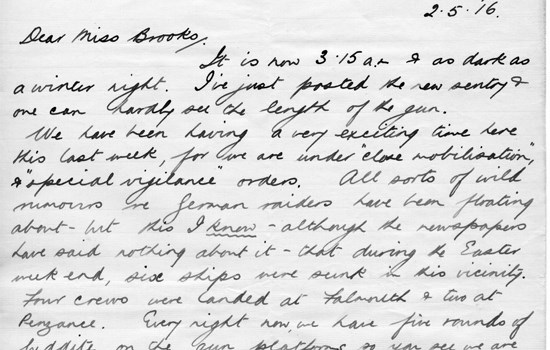 2.5.16.
Dear Miss Brooks,
It is now 3.15 a.m & as dark as
a winter night. I've just posted the new sentry &
one can hardly see the length of the gun.
We have been having a very exciting time here
this last week, for we are under "close mobilisation",
& "special vigilance" orders. All sorts of wild
rumours re German raiders have been floating
about - but this I know - although the newspapers
have said nothing about it - that during the Easter
week end, six ships were sunk in this vicinity.
Four crews were landed at Falmouth & two at
Penzance. Every night now, we have five rounds of
lyddite on the gun platforms so you see we are